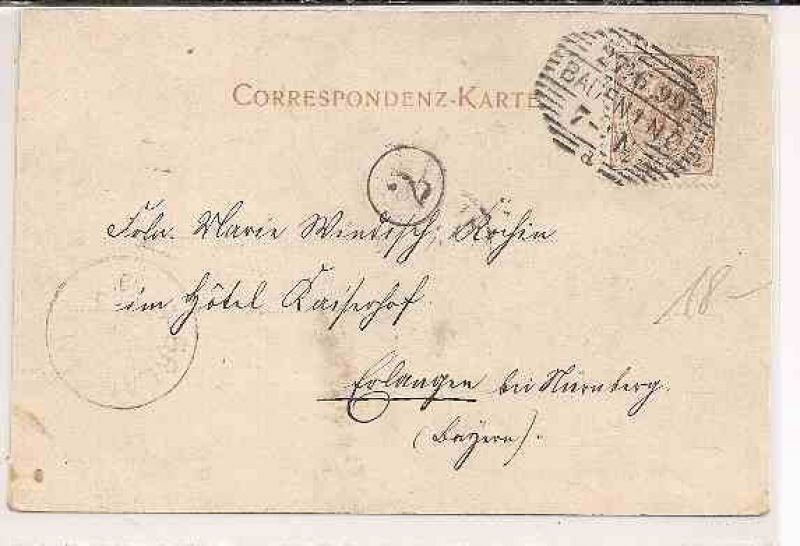 CORRESPONDENZ-KARTE
27.6.99
BADEN IN N.Ö.
7-
a
2
Frln. Marie Windisch, Köchin
im Hôtel Kaiserhof
18-
Erlangen bei Nürnberg.
(Bayern).